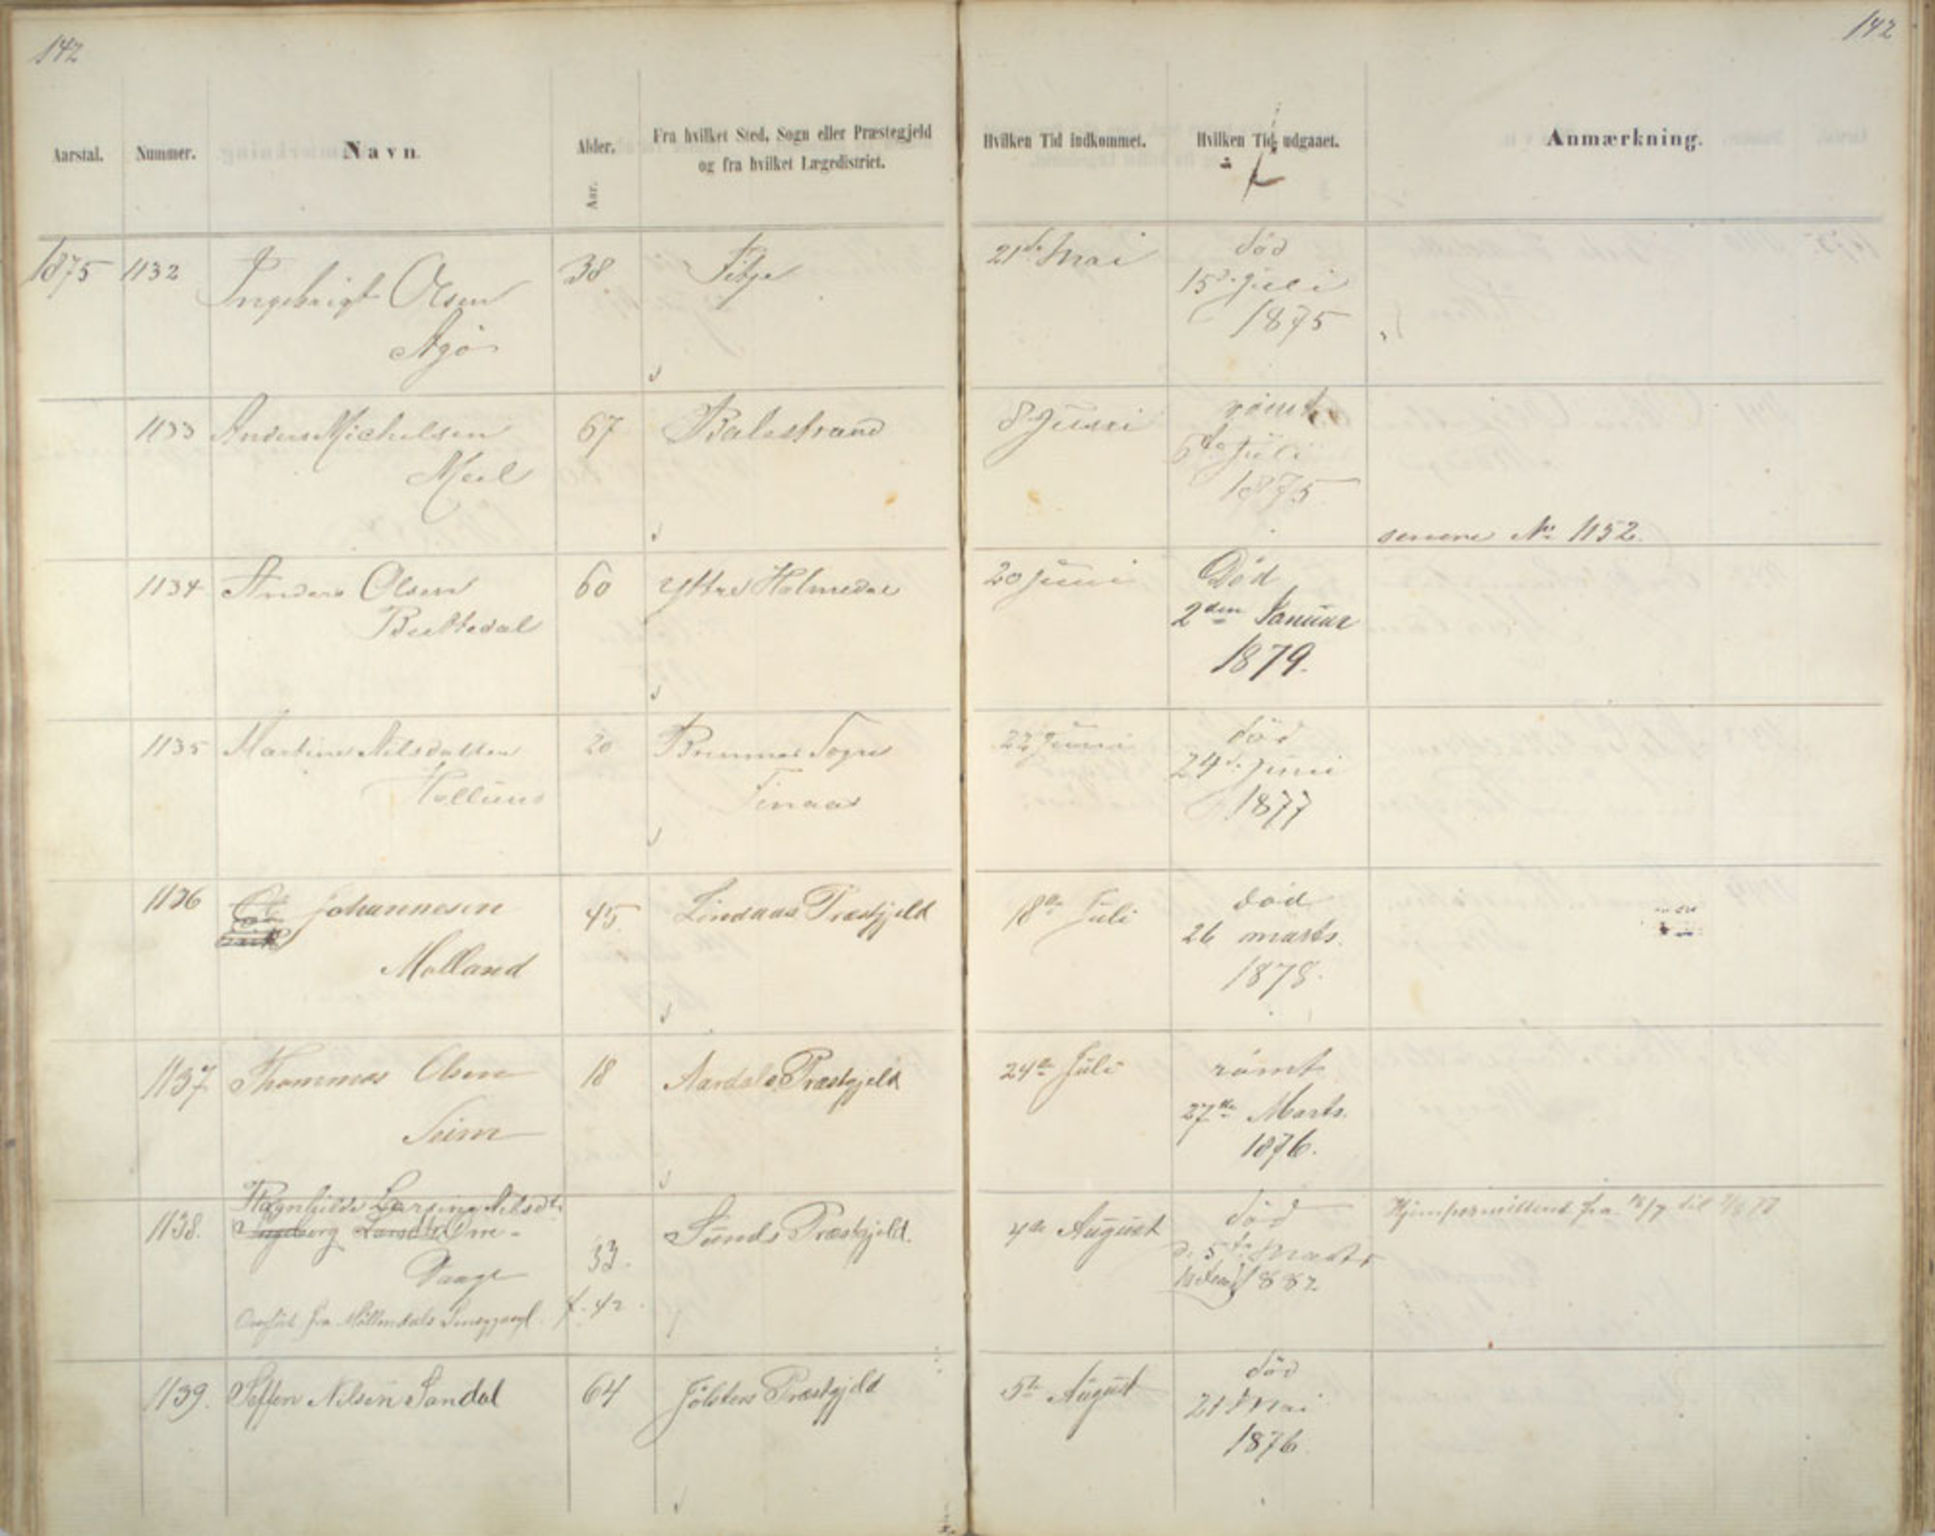 142
142
Aarstal.
Nummer.
Navn.
Alder.
Aar.
Fra hvilket Sted, Sogn eller Præstegjeld
og fra hvilket Lægedistrict.
Hvilken Tid indkommet.
Hvilken Tid udgaaet.
Anmærkning.
1875 1132
Ingebrigt Olsen
38
21de Mai
död
15de Juli
1875
1133 Anders Michelsen
67
Balestrand
8 Juni
römt
6te Juli
1875
senere No 1152
1134 Anders Olsen
60
Yttre Holmedal
20 Juni
Död
2den Januar
1879.
1135 Martine Nilsdatter
20
Bremnes Sogn
Finaas
22 Juni
död
24de Juni
1877
1136
Johannesen
Molland
45
Lindaas Præstgjeld
18de Juli
död
26 marts
1878.
1137 Thommas Olsen
Seim
18
Aardals Præstgjeld
24de Juli
römt
27de Marts.
1876.
1138.
Ragnhilde Larsine Nilsdt.
Ingeborg
Vaage
Overfört fra Möllendals
33.
f. 42
Sunds Præstgjeld.
4de August
död
d. 5te Marts
1882
Hjempermitteret fra
til
1139. Steffen Nilsen Sandal
64
Jölsters Præstgjeld
5te August
död
21 Mai
1876